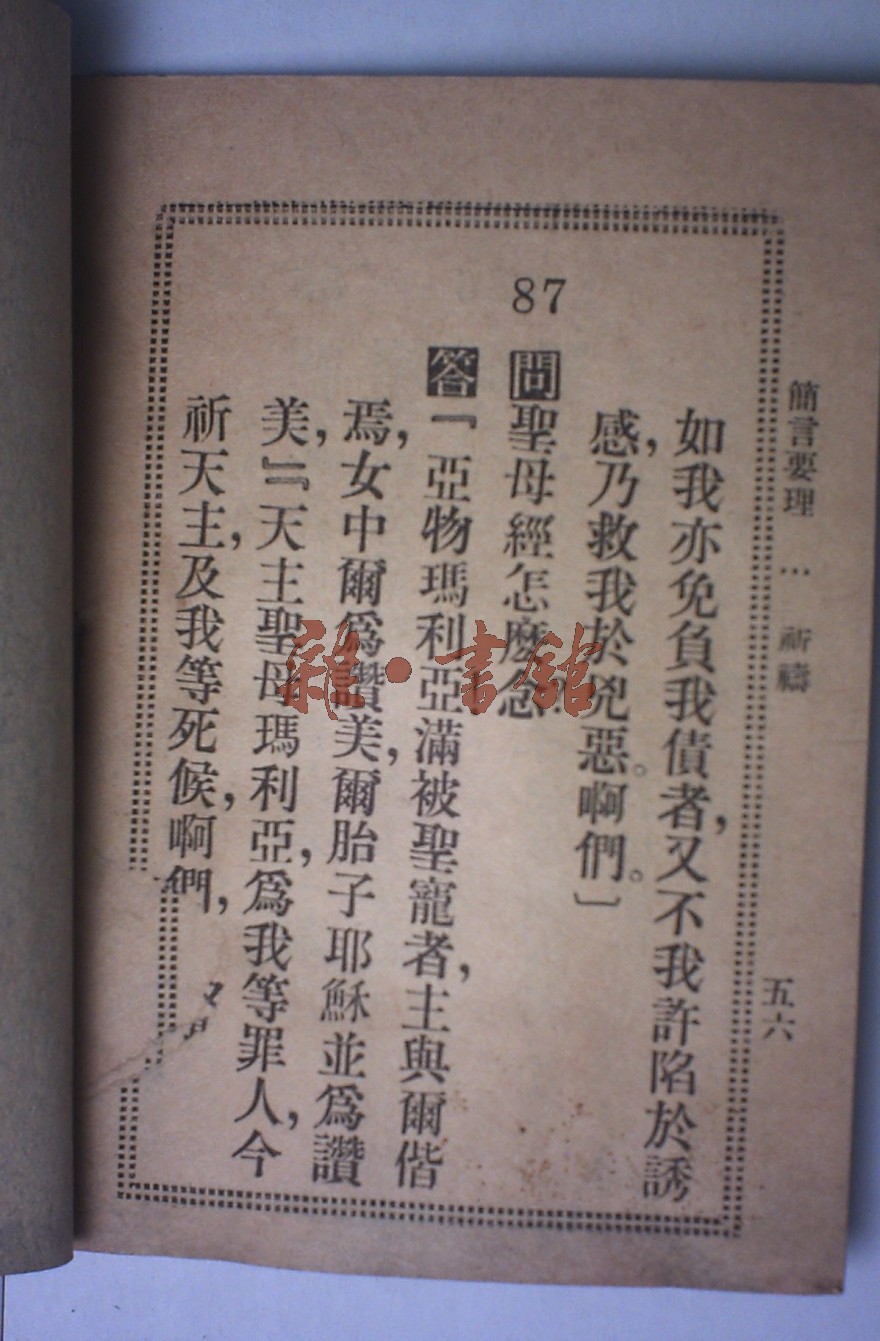 簡言要理 … 祈禱 五六
如我亦免負我債者,又不我許陷於誘
感,乃救我於兇惡。啊們。〕
87
問聖母經怎麽念
答『亞物瑪利亞滿被聖寵者,主與爾偕
焉,女中爾爲讚美,爾胎子耶穌並爲讚
美,』『天主聖母瑪利亞,爲我等罪人,今
祈天主,及我等死候,啊們,
雜·書館